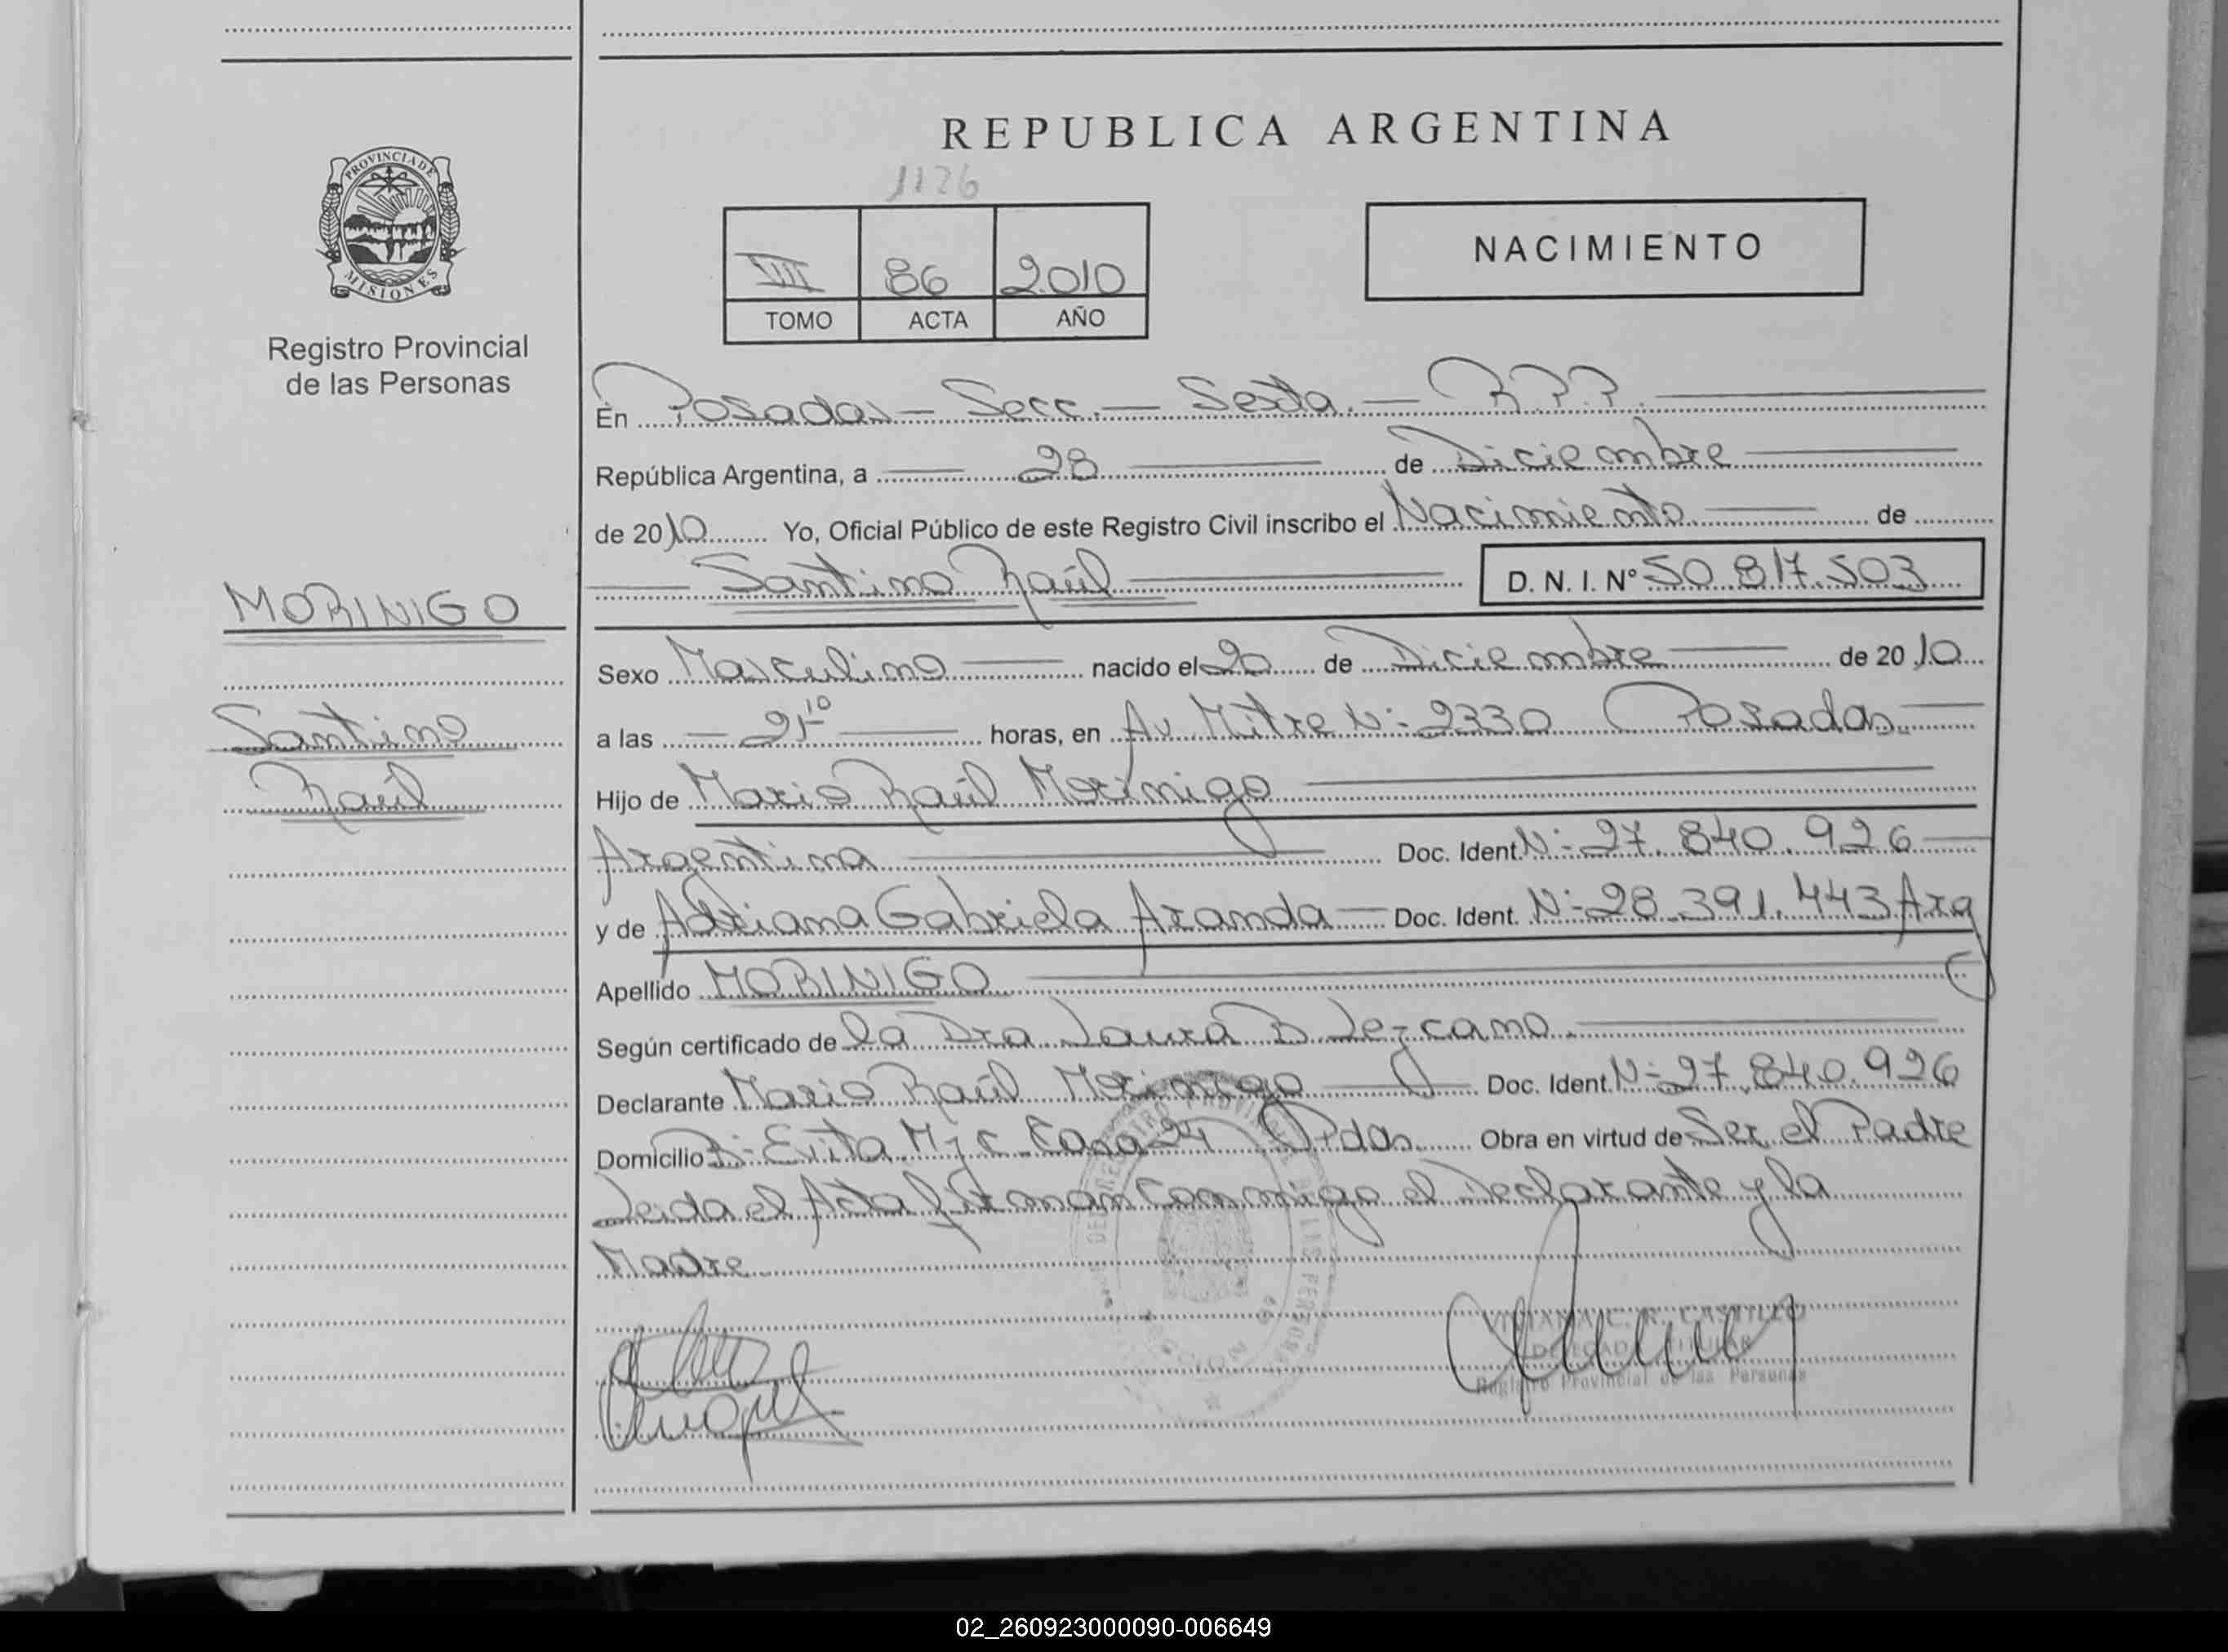 REPUBLICA ARGENTINA
1126
PROVINCIA DE
MISIONES
Registro Provincial
de las Personas
VIII 86 2010
TOMO ACTA AÑO
NACIMIENTO
En Posadas - Secc. - Sexta. - R.P.P.
República Argentina, a 28 de Diciembre
de 2010 Yo, Oficial Público de este Registro Civil inscribo el Nacimiento de
Santino Raúl D. N. I. N° 50.817.503
MORINIGO
Santino
Raúl
Sexo Masculino nacido el 20 de Diciembre de 2010
a las 21 10 horas, en Av. Mitre N: 2330 Posadas
Hijo de Mario Raúl Morinigo
Argentina Doc. Ident. N: 27.840.926
y de Adriana Gabriela Aranda Doc. Ident. N: 28.391.443 Arg
Apellido MORINIGO
Según certificado de la Dra Laura B Lezcano
Declarante Mario Raúl Morinigo Doc. Ident. N: 27.840.926
Domicilio B: Evita Mz C Casa 24 Pdas Obra en virtud de Ser el Padre
Leida el Acta firman conmigo el Declarante y la
Madre
VIVIANA C. R. CASTILLO
DELEGADA TITULAR
Registro Provincial de las Personas
02_260923000090-006649